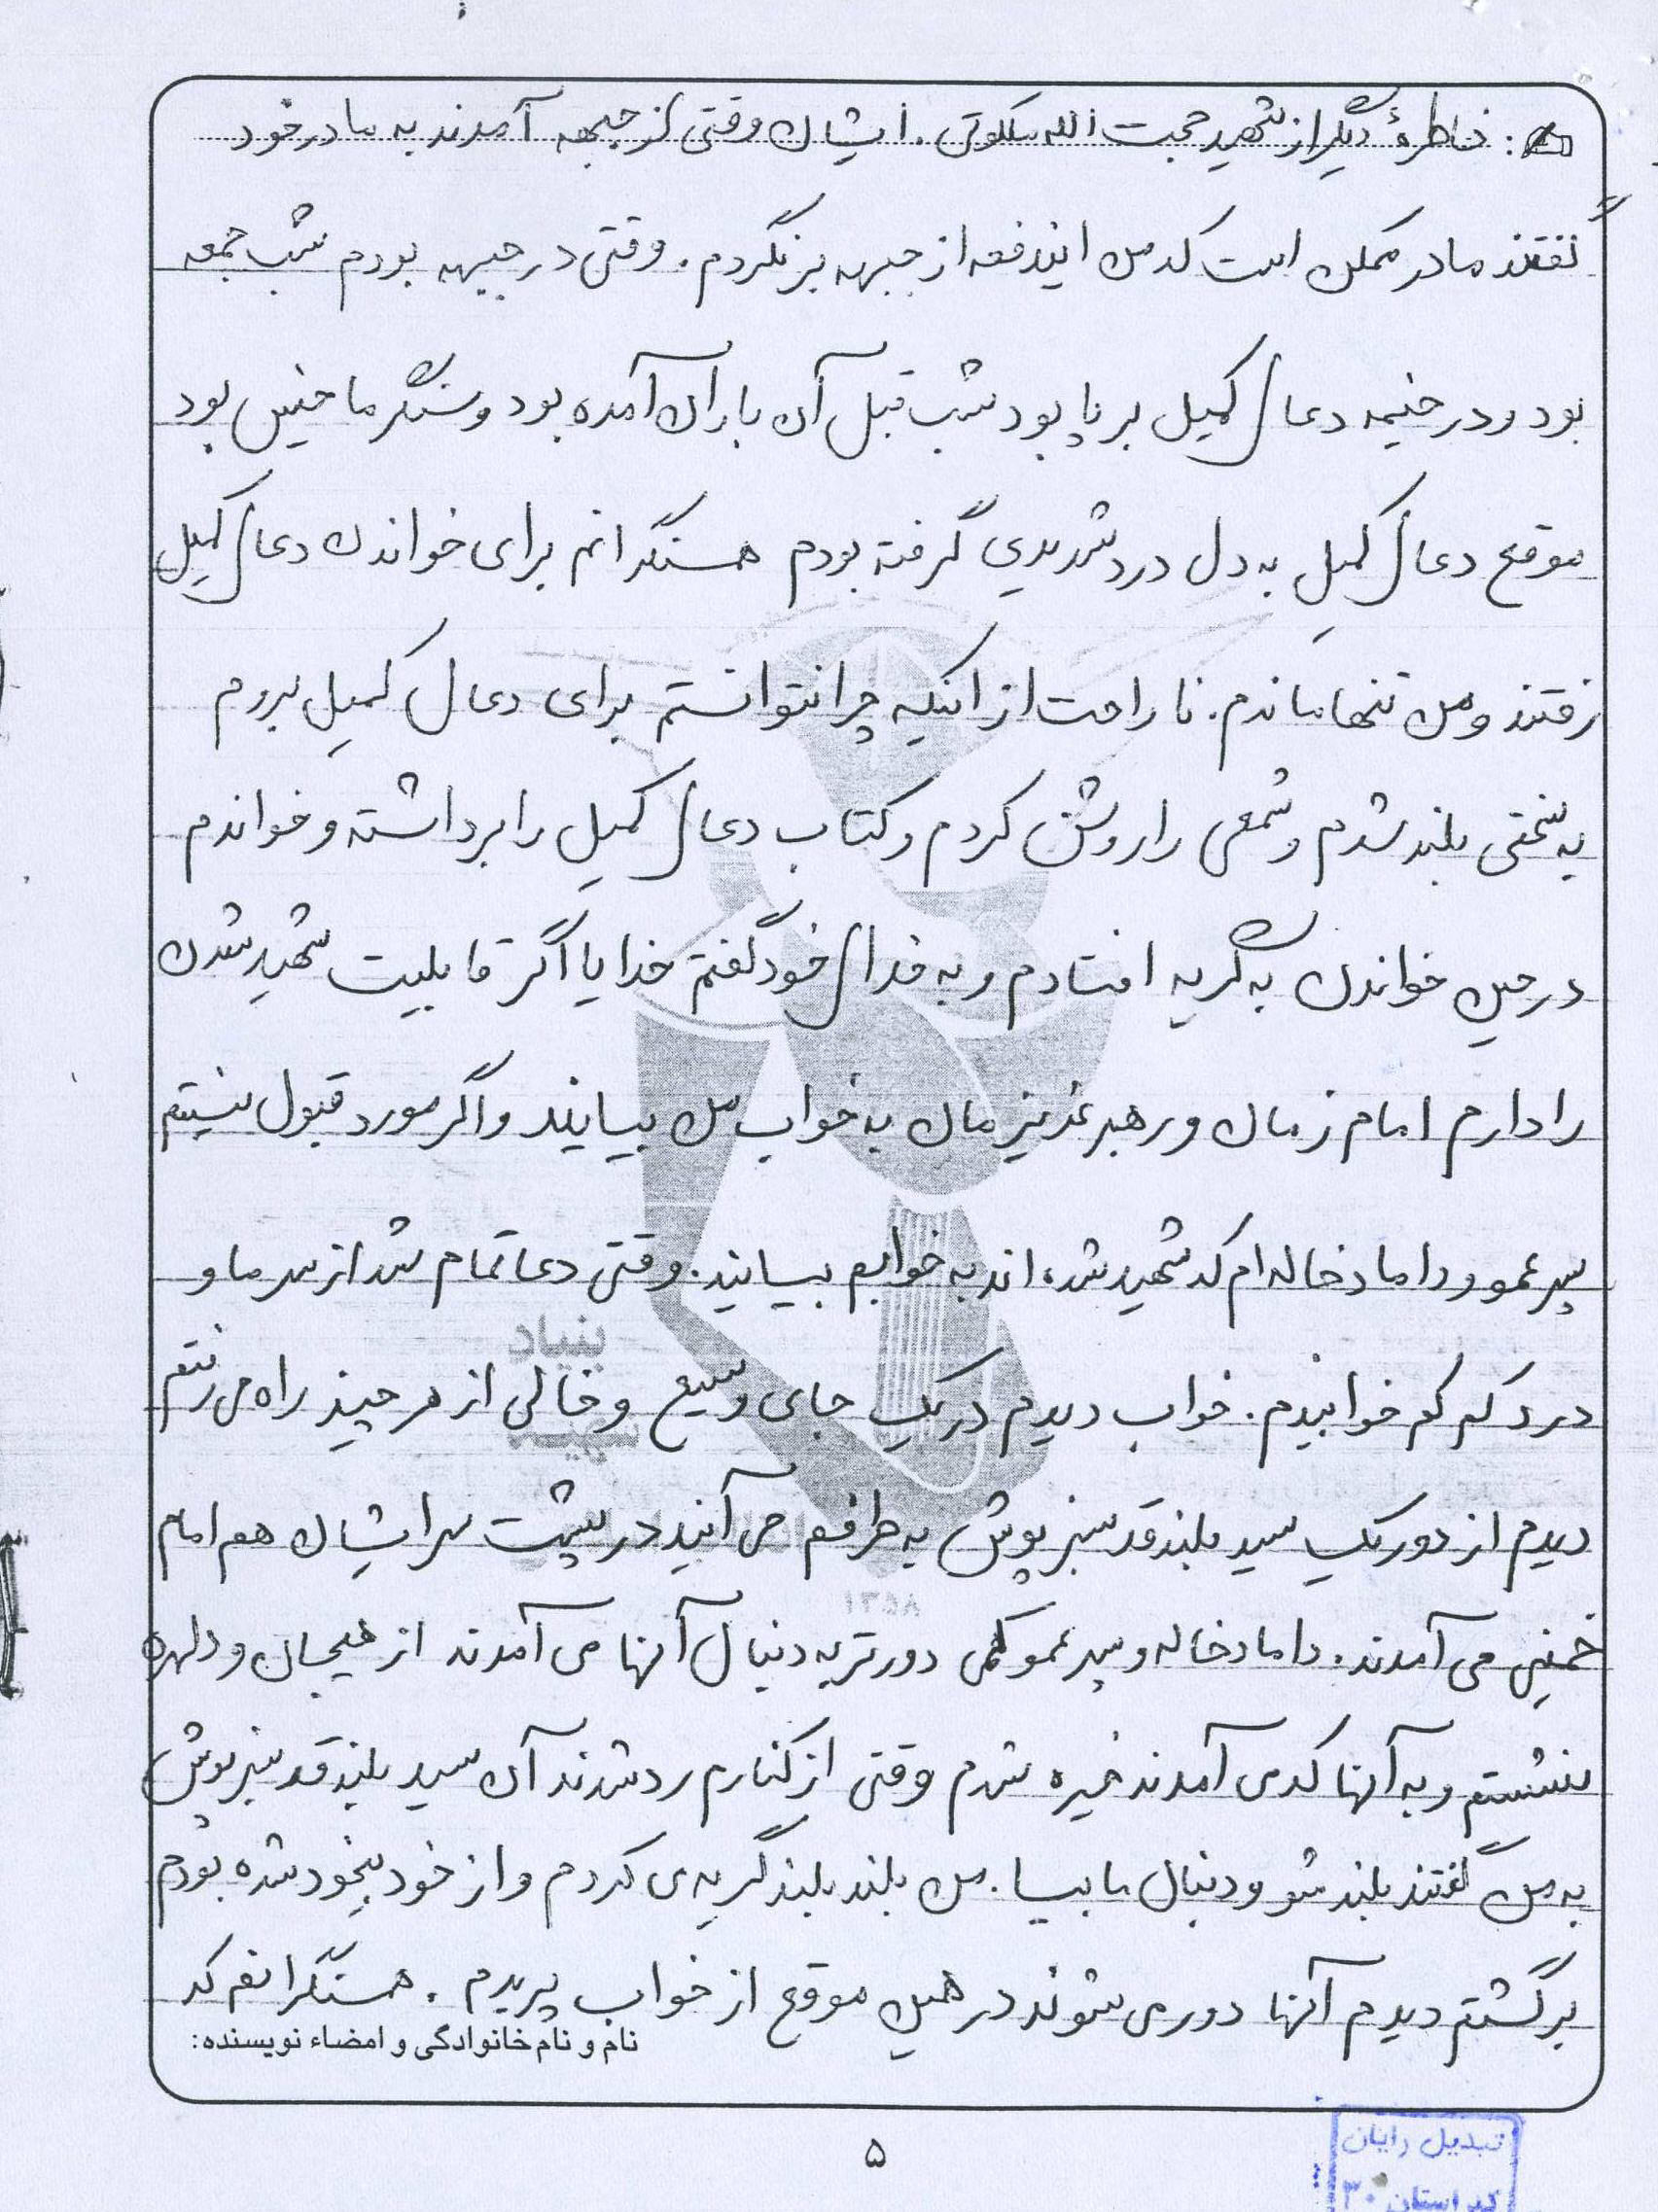 خاطرهٔ دیگر از شهید حجت الله ملکوتی. ایشان وقتی از جبهه آمدند به مادر خود
گفتند مادر ممکن است که من ایندفعه از جبهه برنگردم. وقتی در جبهه بودم شب جمعه
بود و در خیمه دعای کمیل برپا بود شب قبل آن باران آمده بود و سنگر ما خیس بود
موقع دعای کمیل به دل درد شدیدی گرفته بودم همسنگرانم برای خواندن دعای کمیل
رفتند و من تنها ماندم. ناراحت از اینکه چرا نتوانستم برای دعای کمیل بروم
به سختی بلند شدم و شمعی را روشن کردم و کتاب دعای کمیل را برداشته و خواندم
در حین خواندن به گریه افتادم و به خدای خود گفتم خدایا اگر قابلیت شهید شدن
را دارم امام زمان و رهبر عزیزمان به خواب من بیایند و اگر مورد قبول نیستم
پسر عمو و داماد خاله ام که شهید شده اند به خوابم بیایند. وقتی دعا تمام شد از سرما و
درد کم کم خوابیدم. خواب دیدم در یک جای وسیع و خالی از هر چیز راه می رفتم
دیدم از دور یک سید بلند قد سبز پوش به طرفم می آیند در پشت سر ایشان هم امام
خمینی می آمدند. داماد خاله و پسر عمو کمی دورتر به دنبال آنها می آمدند از هیجان و دلهره
نشستم و به آنها که می آمدند خیره شدم وقتی از کنارم رد شدند آن سید بلند قد سبز پوش
به من گفتند بلند شو و دنبال ما بیا. من بلند بلند گریه می کردم و از خود بیخود شده بودم
برگشتم دیدم آنها دور می شوند در همین موقع از خواب پریدم. همسنگرانم که
نام و نام خانوادگی و امضاء نویسنده:
۵
تبدیل رایان
استان ۳۰
بنیاد
شهید
۱۳۵۸